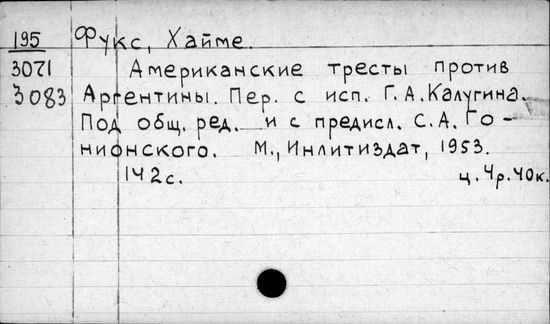 195 Фукс, Хайме.
3071 Американские тресты против
3083 Аргентины. Пер. с исп. Г.А.Калугина.
Под общ. ред. и с предисл. С.А.Го-
нионского. М., Инлитиздат, 1953.
142с. ц.4р.40к.